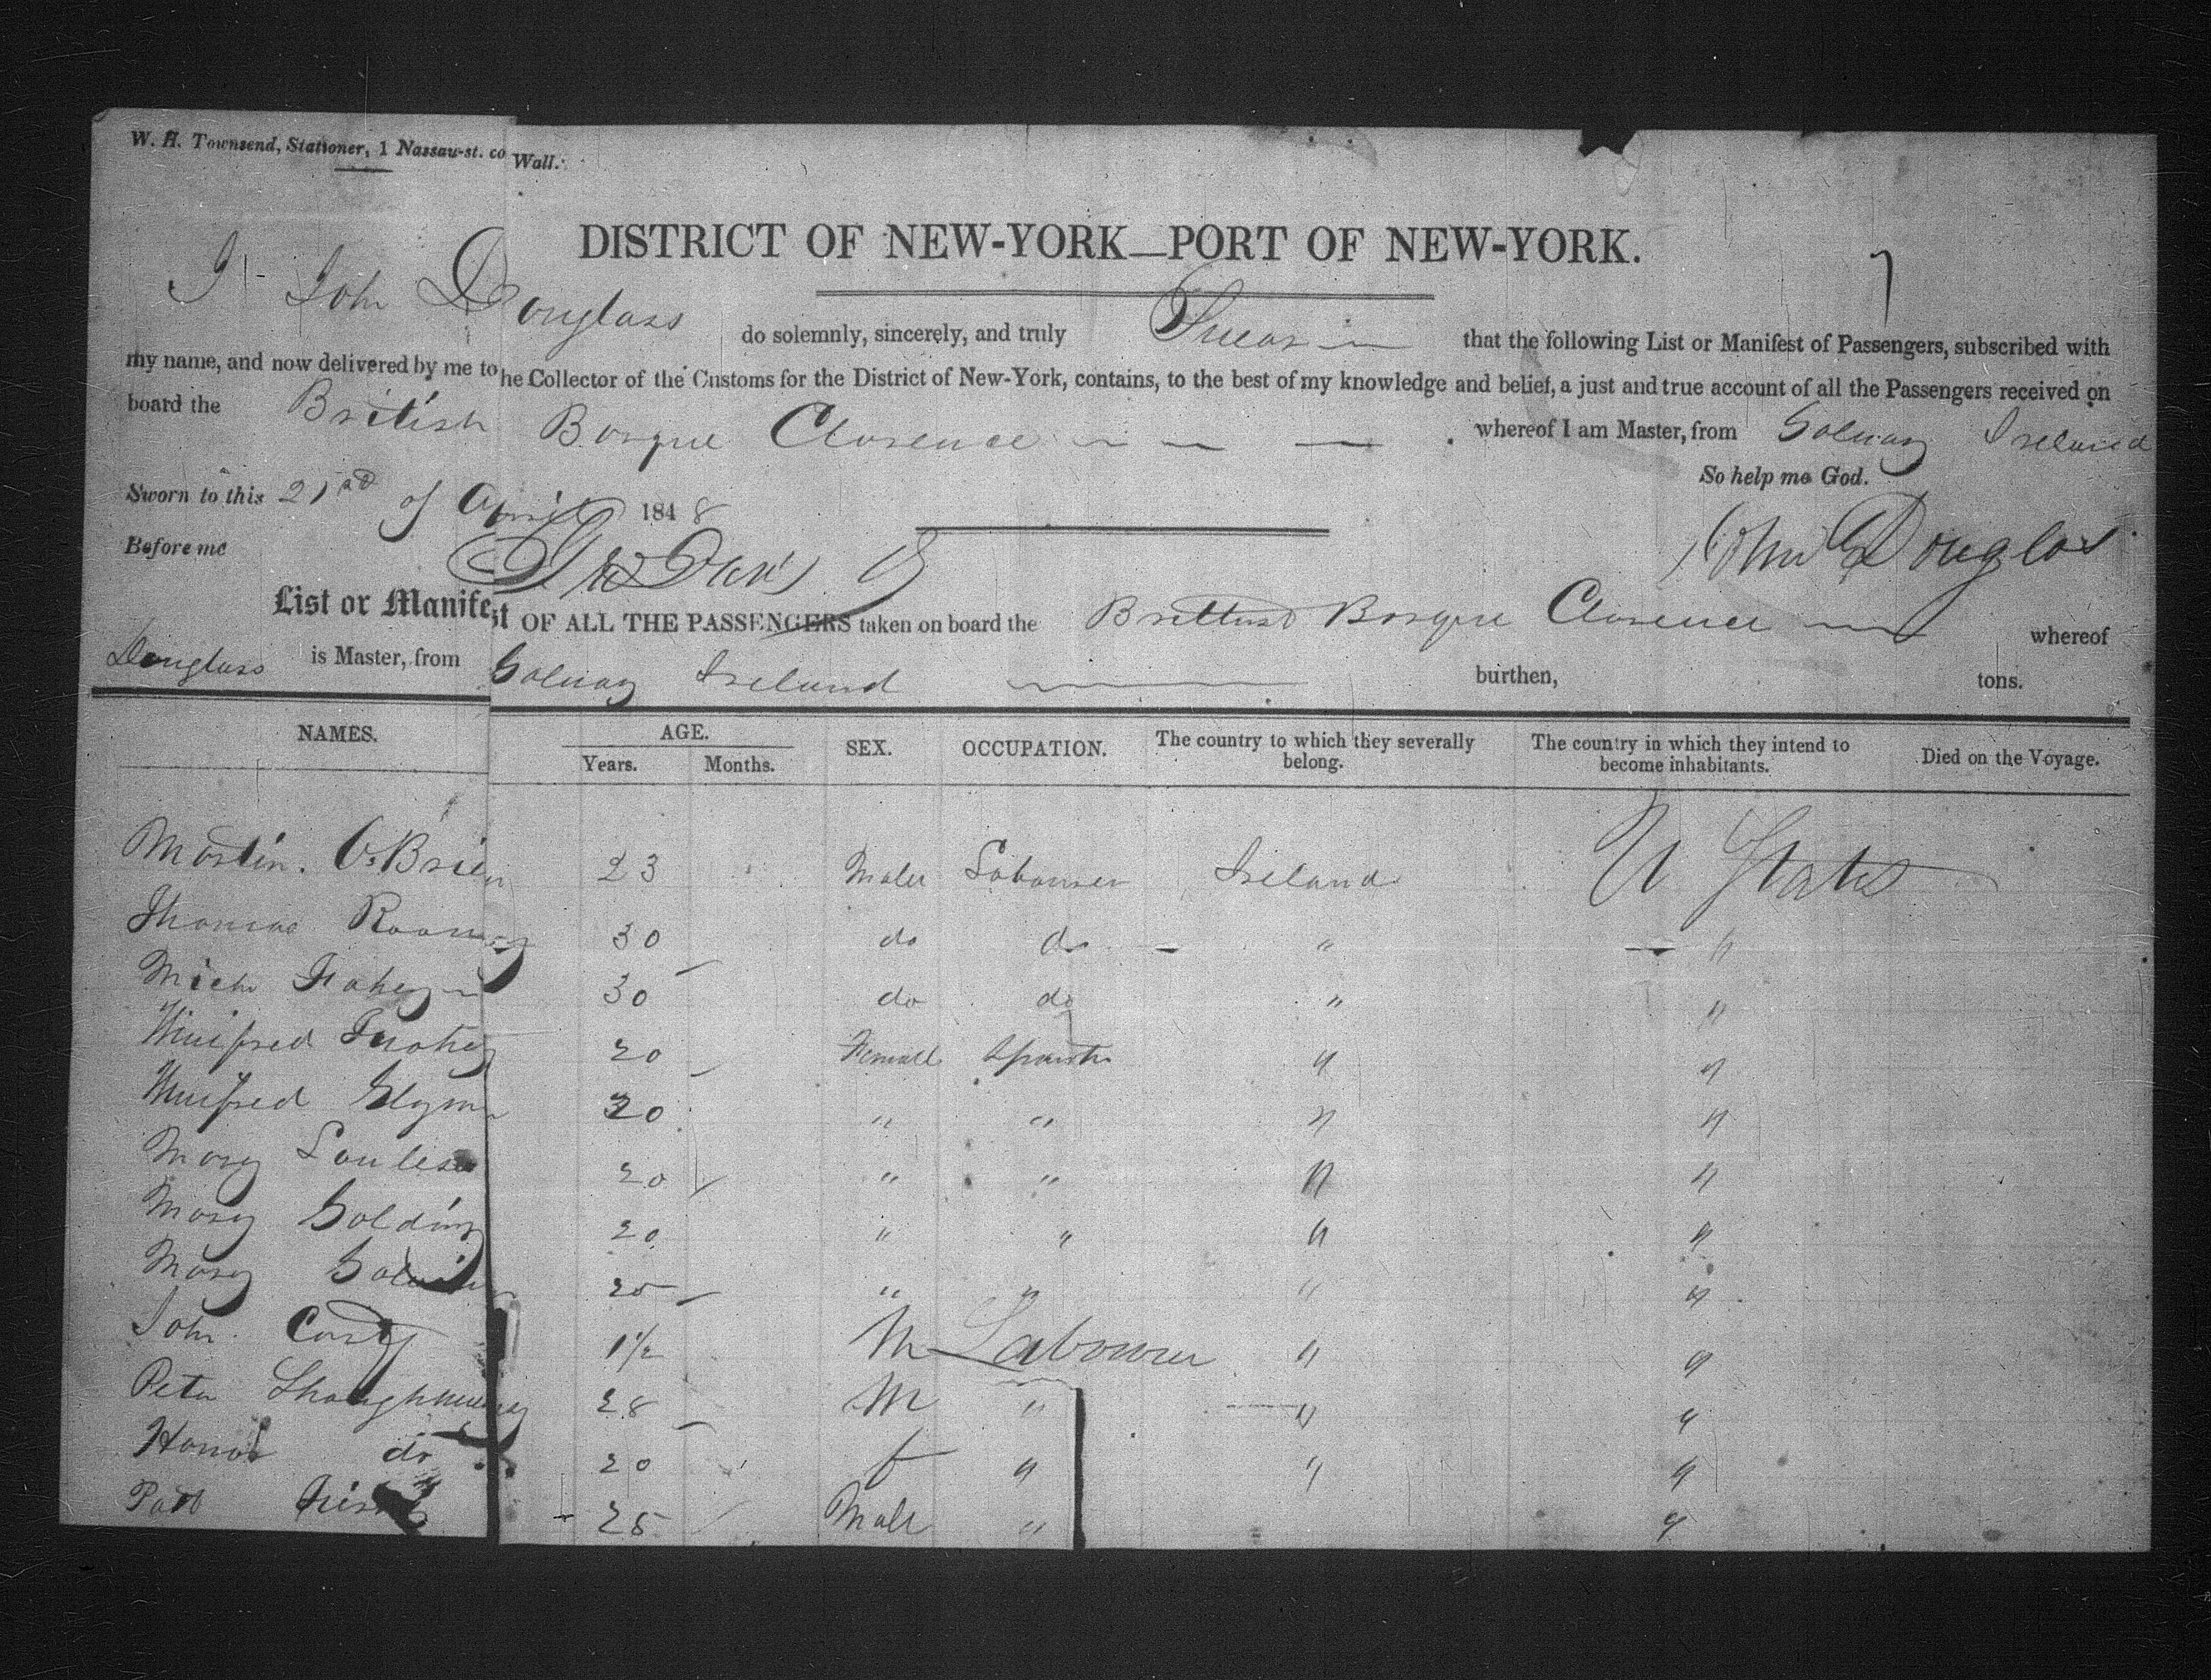 W. H. Townsend, Stationer, 1 Nassau-st. co Wall.
DISTRICT OF NEW-YORK—PORT OF NEW-YORK.
I John Douglass do solemnly, sincerely, and truly Swear that the following List or Manifest of Passengers, subscribed with
my name, and now delivered by me to he Collector of the Customs for the District of New-York, contains, to the best of my knowledge and belief, a just and true account of all the Passengers received on
board the British Barque Clarence whereof I am Master, from Galway Ireland
So help me God.
Sworn to this 21 of April 1848
Before me John Douglas
List or Manifest OF ALL THE PASSENGERS taken on board the Barque Clarence whereof
Douglass is Master, from Galway Ireland burthen, tons.
NAMES. AGE. Years. Months. SEX. OCCUPATION. The country to which they severally belong. The country in which they intend to become inhabitants. Died on the Voyage.
Martin O.Brien 23 Male Labourer Ireland U States
Thomas Rooney 30 do do " "
Mich Fahey 30 do do " "
Winifred 20 Female " "
Winifred Glynn 20 " " " "
Mary 20 " " " "
Mary Golding 20 " " " "
Mary 25 " " " "
John 1½ M Labourer " "
Peter Shaughnessy 28 M " " "
Honor do 20 f " " "
Patt 25 Male " "